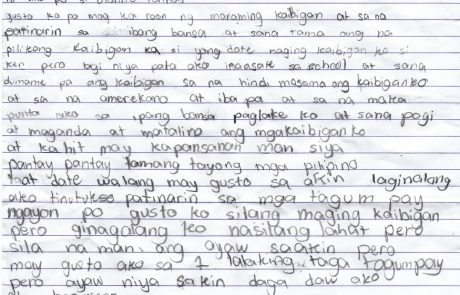 gusto ko po mag ka roon ng maraming kaibigan at sa na
patinarin sa ibang bansa at sana tama ang na
pilikong kaibigan ka si yang date naging kaibigan ko si
ken pero bagi niya pata ako inaasate sa school at sana
dumame pa ang kaibigan sa na hindi masama ang kaibiganko
at sa na amerekano at iba pa at sa na maka
punta ako sa ,pang bansa paglake ko at sana pogi
at maganda at matalino ang mgakaibiganko
at kahit may kapansanan man siya
pantay pantay tamang tayong mga pilipino
at date walang may gusto sa akin laginalang
ako tinutukso patinarin sa mga tagum pay
ngayon po gusto ko silang maging kaibigan
pero ginagalang ko nasilang lahat pero
sila na man ang ayaw saakin pero
may gusto ako sa 1 lalaking taga tagumpay
pero ayaw niya sakin daga daw ako